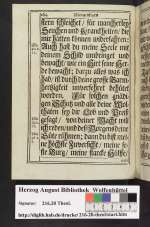 stern schleichet / für mancherley
Seuchen und Kranckheiten / die
mir hätten können widerfahren:
Auch hast du meine Seele mit
deinem Schild umbringet und
bewacht / wie ein Hirt seine Her-
de bewacht; darzu alles was ich
hab / ist durch deine grosse Barm-
hertzigkeit unversehret behütet
worden. Für solchen gnädi-
gen Schutz und alle deine Wol-
thaten sey dir Lob und Preiß
gesagt / von deiner Macht will
ich rühmen / und des Morgens deine
Güte rühmen; Dann du bist mei-
ne höchste Zuversicht / meine fe-
ste Burg / meine starcke Hülffe /
Herzog August Bibliothek Wolfenbüttel
Signatur: 216.28 Theol.
http://diglib.hab.de/drucke/216-28-theol/start.htm